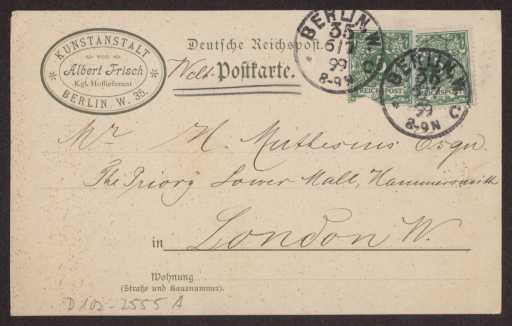 KUNSTANSTALT
VON
Albert Frisch
Kgl. Hoflieferant
BERLIN. W. 35.
Deutsche Reichspost.
Welt Postkarte.
BERLIN, W.
35
6/7
99
8-9N
C.
REICHSPOST
BERLIN, W.
35
99
8-9N
C.
Mr H. Muthesius Esqu.
The Priory Lower Mall, Hammersmith
in London W.
Wohnung
(Straße und Hausnummer).
D 102-2555 A